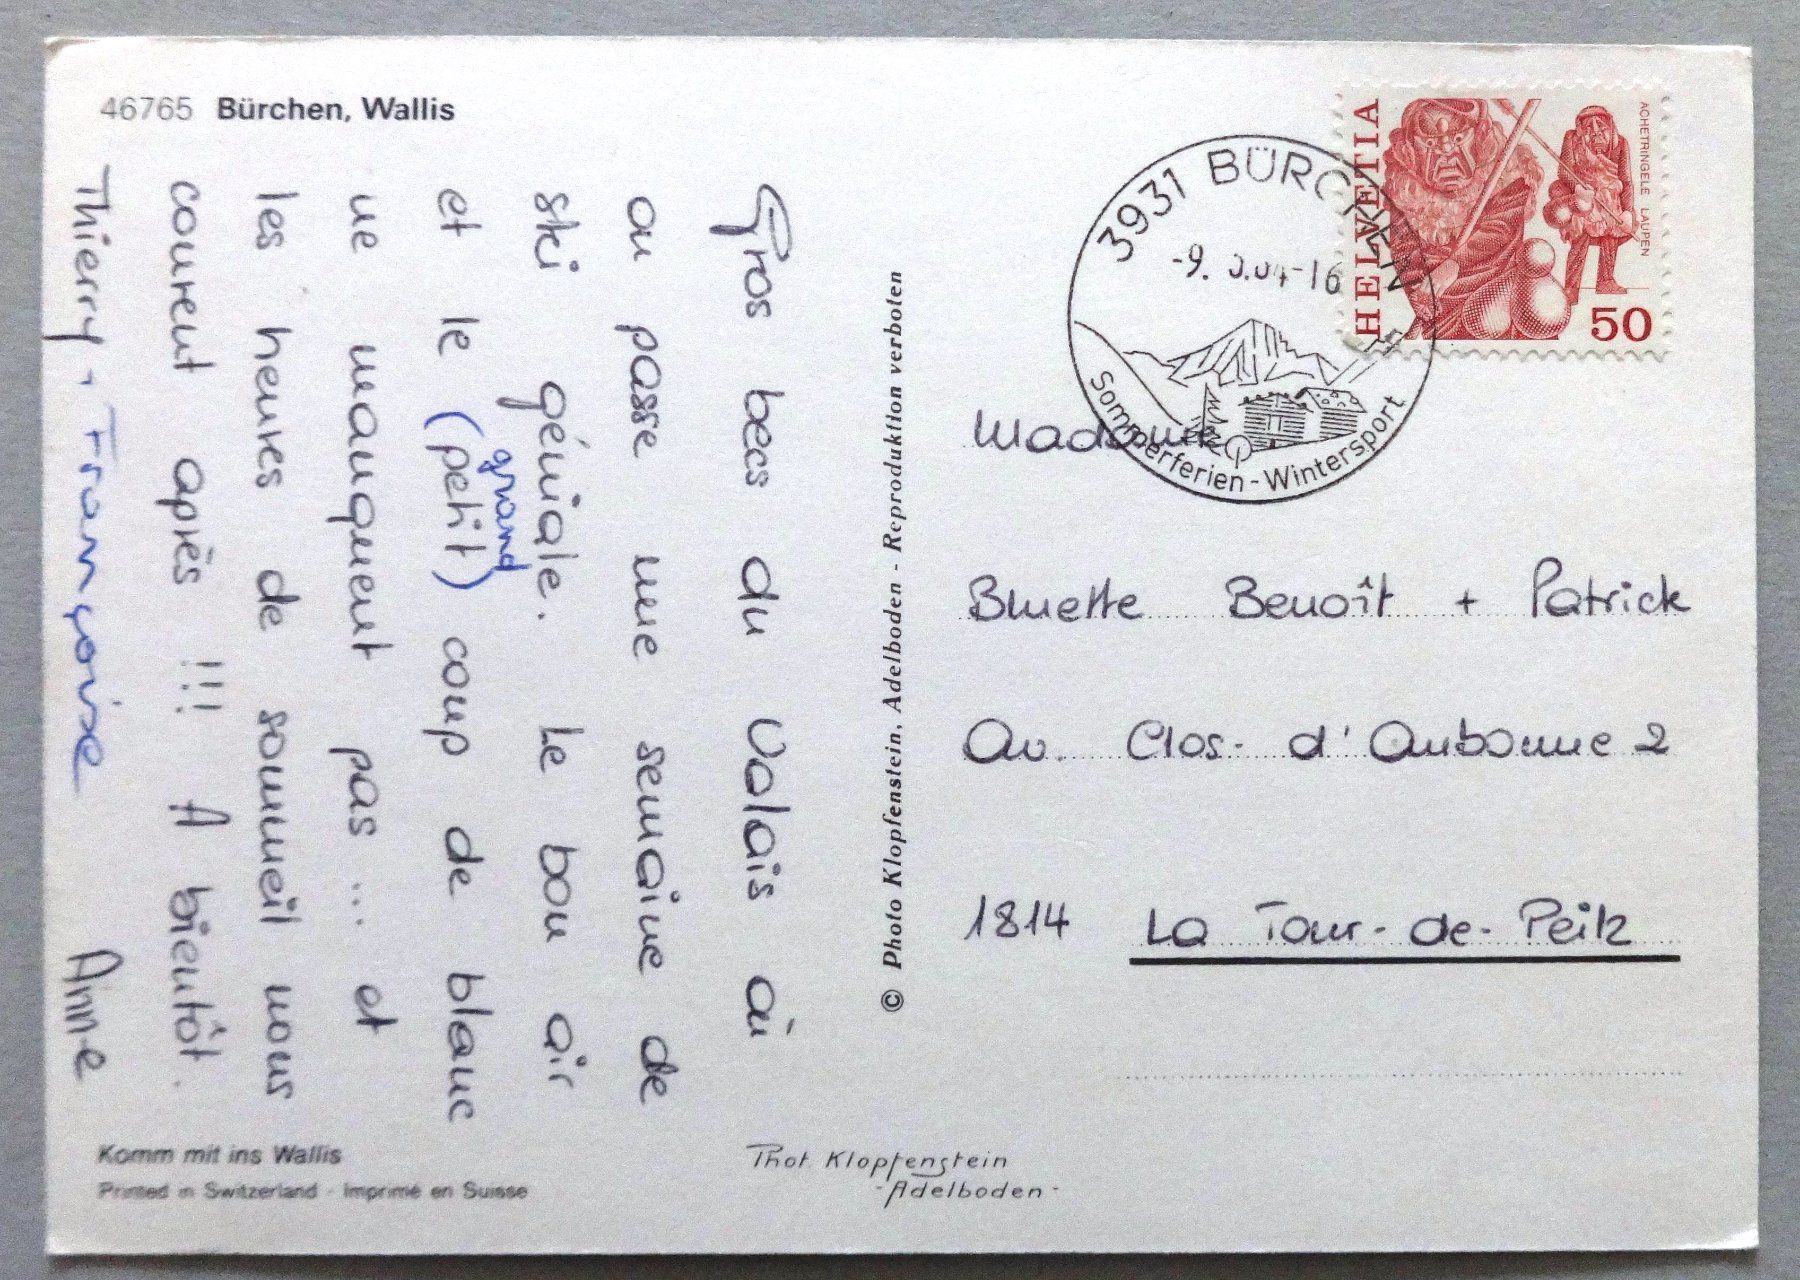 46765 Bürchen, Wallis
Gros becs du Valais où
on passe une semaine de
ski géniale. Le bon air
grand
et le (petit) coup de blanc
ne manquent pas... et
les heures de sommeil nous
courent après !!! A bientôt.
Thierry + Françoise Anne
Komm mit ins Wallis
Printed in Switzerland - Imprimé en Suisse
© Photo Klopfenstein, Adelboden - Reproduktion verboten
Phot. Klopfenstein
- Adelboden -
3931 BÜRCHEN
-9. -16
Sommerferien - Wintersport
HELVETIA
ACHETRINGELE LAUPEN
50
Madame
Bluette Benoît + Patrick
Av. Clos- d'Aubonne 2
1814 La Tour-de-Peilz